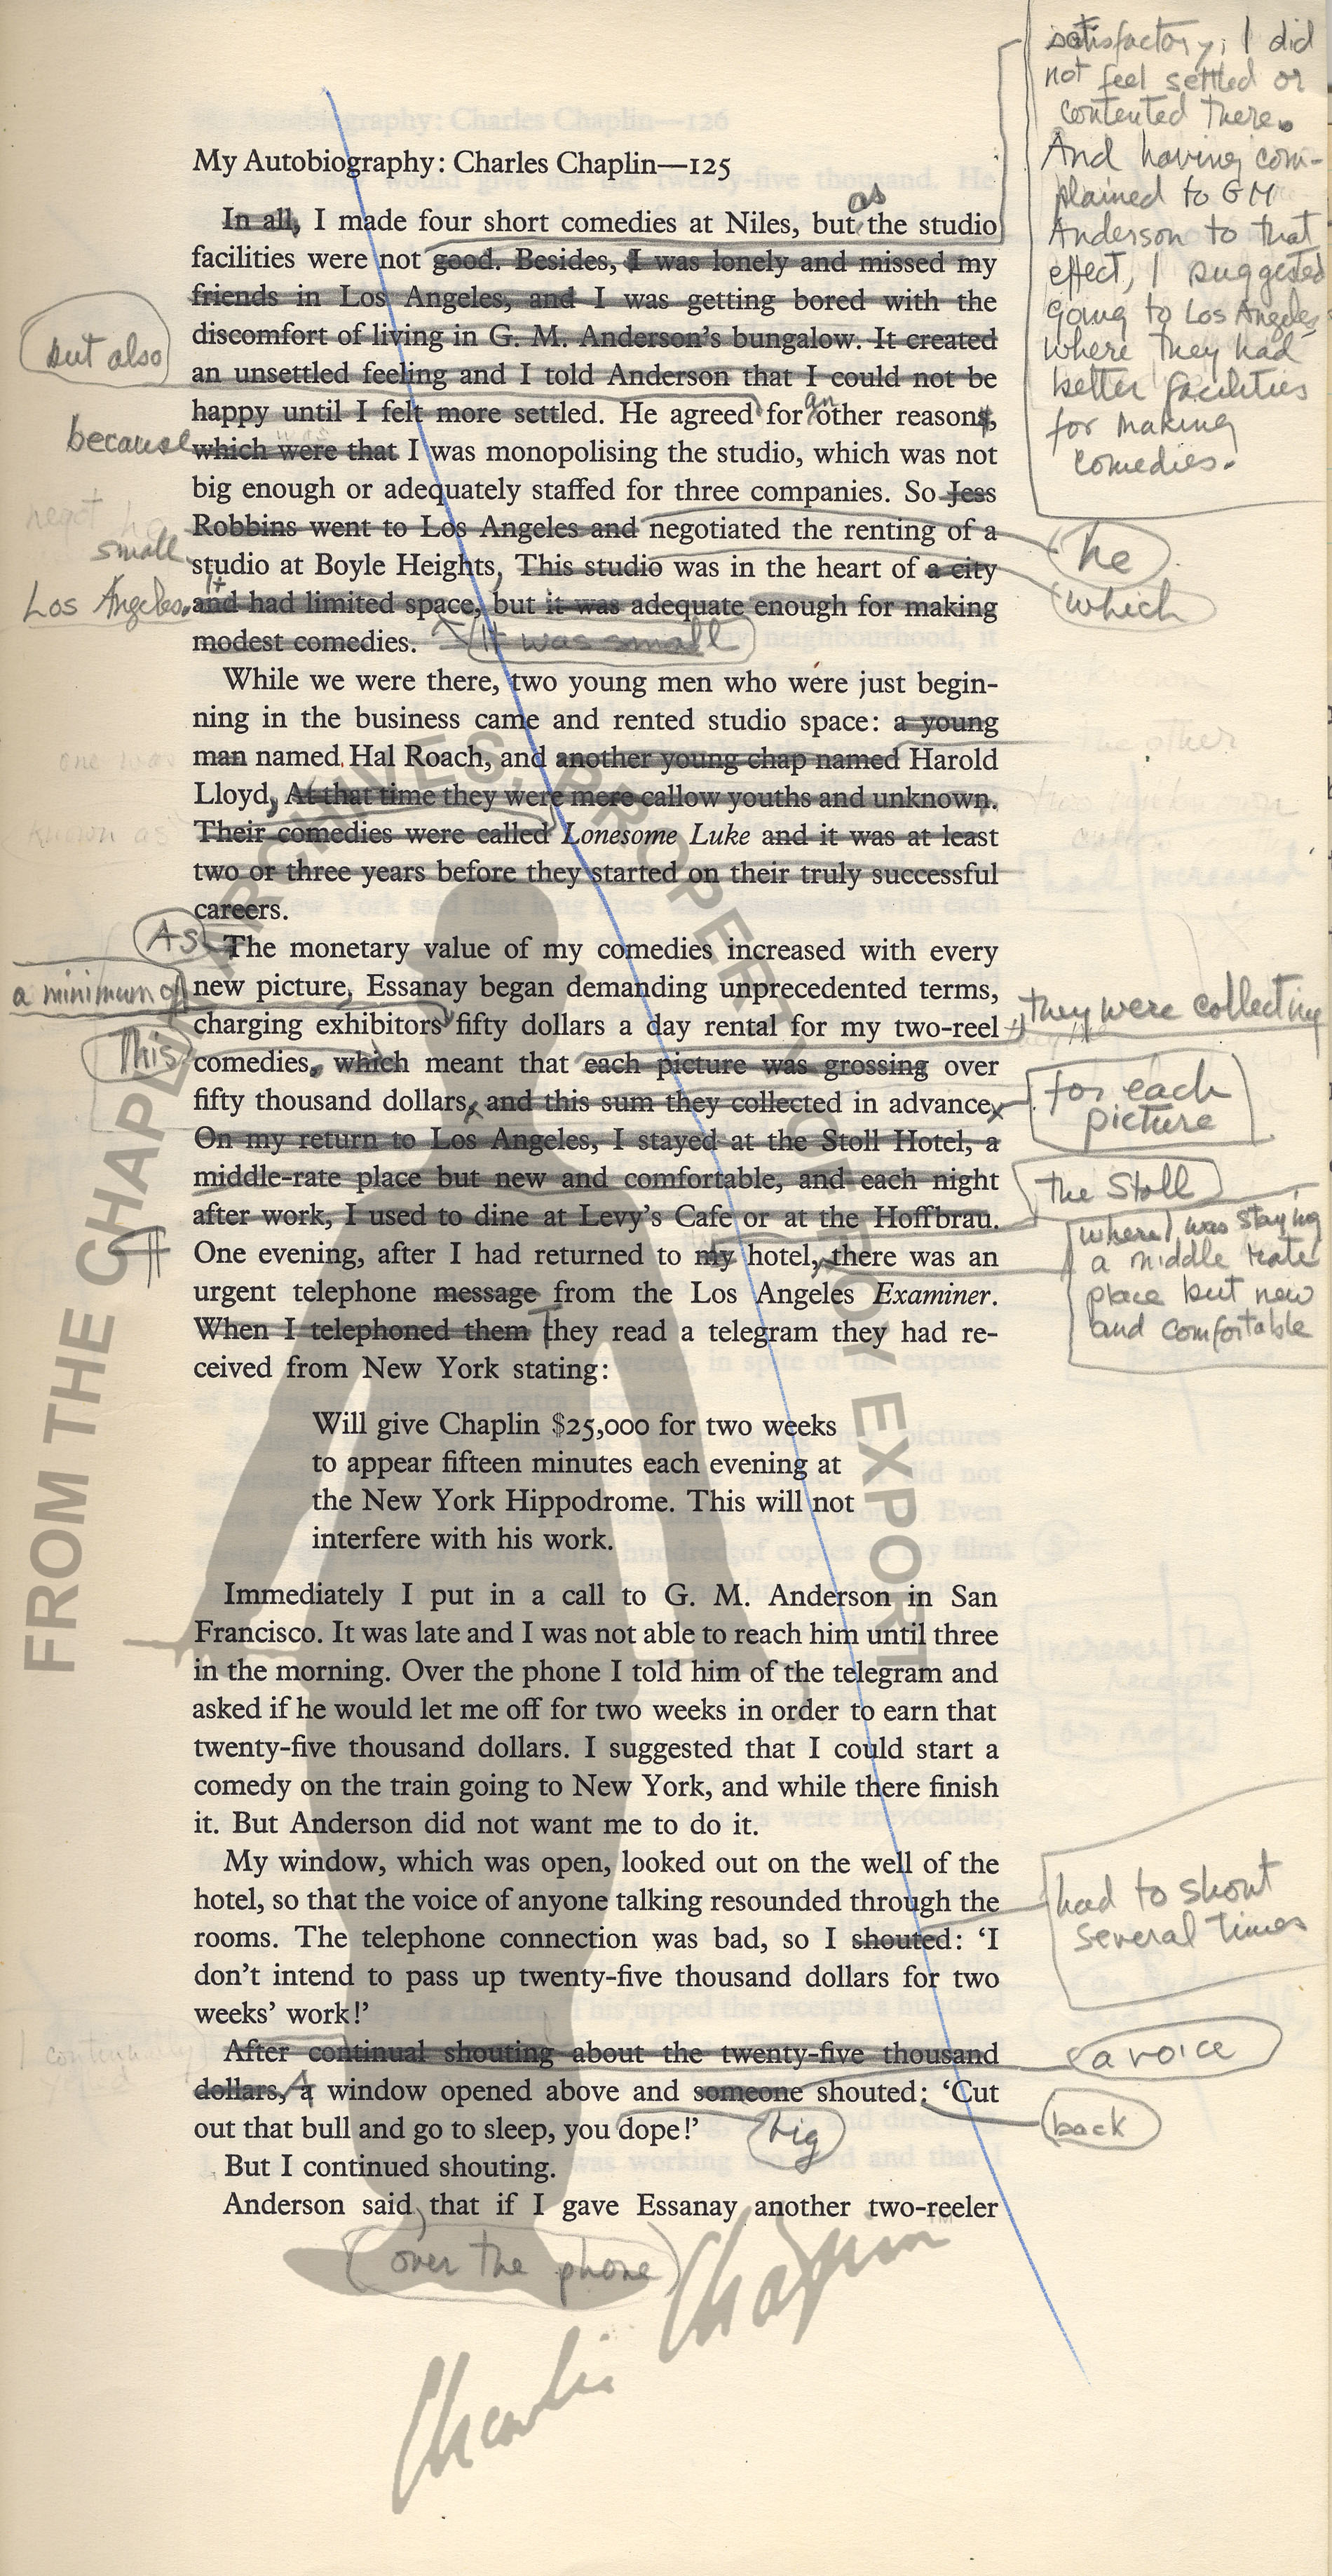 My Autobiography: Charles Chaplin—125
In all, I made four short comedies at Niles, but as the studio
facilities were not good. Besides, I was lonely and missed my
friends in Los Angeles, and I was getting bored with the
discomfort of living in G. M. Anderson's bungalow. It created
an unsettled feeling and I told Anderson that I could not be
happy until I felt more settled. He agreed for an other reasons,
which were that I was monopolising the studio, which was not
big enough or adequately staffed for three companies. So Jess
Robbins went to Los Angeles and negotiated the renting of a
studio at Boyle Heights, This studio was in the heart of a city
and had limited space, but it was adequate enough for making
modest comedies. It was small
While we were there, two young men who were just begin-
ning in the business came and rented studio space: a young
man named Hal Roach, and another young chap named Harold
Lloyd, At that time they were mere callow youths and unknown.
Their comedies were called Lonesome Luke and it was at least
two or three years before they started on their truly successful
careers.
The monetary value of my comedies increased with every
new picture, Essanay began demanding unprecedented terms,
charging exhibitors fifty dollars a day rental for my two-reel
comedies, which meant that each picture was grossing over
fifty thousand dollars, and this sum they collected in advance,
On my return to Los Angeles, I stayed at the Stoll Hotel, a
middle-rate place but new and comfortable, and each night
after work, I used to dine at Levy's Cafe or at the Hoffbrau.
One evening, after I had returned to my hotel, there was an
urgent telephone message from the Los Angeles Examiner.
When I telephoned them They read a telegram they had re-
ceived from New York stating:
Will give Chaplin $25,000 for two weeks
to appear fifteen minutes each evening at
the New York Hippodrome. This will not
interfere with his work.
Immediately I put in a call to G. M. Anderson in San
Francisco. It was late and I was not able to reach him until three
in the morning. Over the phone I told him of the telegram and
asked if he would let me off for two weeks in order to earn that
twenty-five thousand dollars. I suggested that I could start a
comedy on the train going to New York, and while there finish
it. But Anderson did not want me to do it.
My window, which was open, looked out on the well of the
hotel, so that the voice of anyone talking resounded through the
rooms. The telephone connection was bad, so I shouted: 'I
don't intend to pass up twenty-five thousand dollars for two
weeks' work!'
After continual shouting about the twenty-five thousand
dollars, A a window opened above and someone shouted: 'Cut
out that bull and go to sleep, you dope!'
big
But I continued shouting.
Anderson said that if I gave Essanay another two-reeler
(over the phone)
satisfactory, I did
not feel settled or
contented there.
And having com-
plained to GM
Anderson to that
effect, I suggested
going to Los Angeles,
where they had
better facilities
for making
comedies.
he
which
they were collecting
for each
picture
the Stoll
where I was staying
a middle rate
place but new
and comfortable
had to shout
several times
a voice
back
but also
because
small
Los Angeles.
It
As
a minimum of
This
the other
one was
known as
increases the
receipts
FROM THE CHAPLIN ARCHIVES, PROPERTY OF ROY EXPORT
Charlie Chaplin